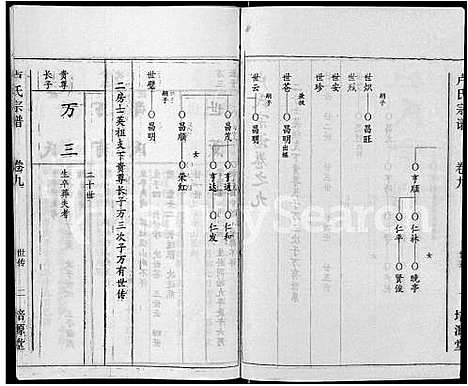 卢氏宗谱
卷九
培源堂
亨顺
仁林
晚亭
女
仁平
贤俊
世炽
嗣子
昌旺
世烒
世安
世珍
世苍
兼祧
昌明
出继
世云
嗣子
昌明
昌茂
亨通
仁和
亨达
仁发
昌顺
女
荣红
世璧
嗣子
昌明
二房士英祖支下贵尊长子万三次子万有世传
二十世
贵尊
长子
万三
生卒葬失考
氏宗谱
卷九
世传
二
培源堂